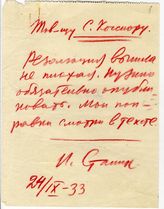 Тов-щу С. Косиору.
Резолюция вышла
не плохая. Нужно
обязательно опубли-
ковать. Мои поп-
равки смотри в тексте
И. Сталин
24/IX-33